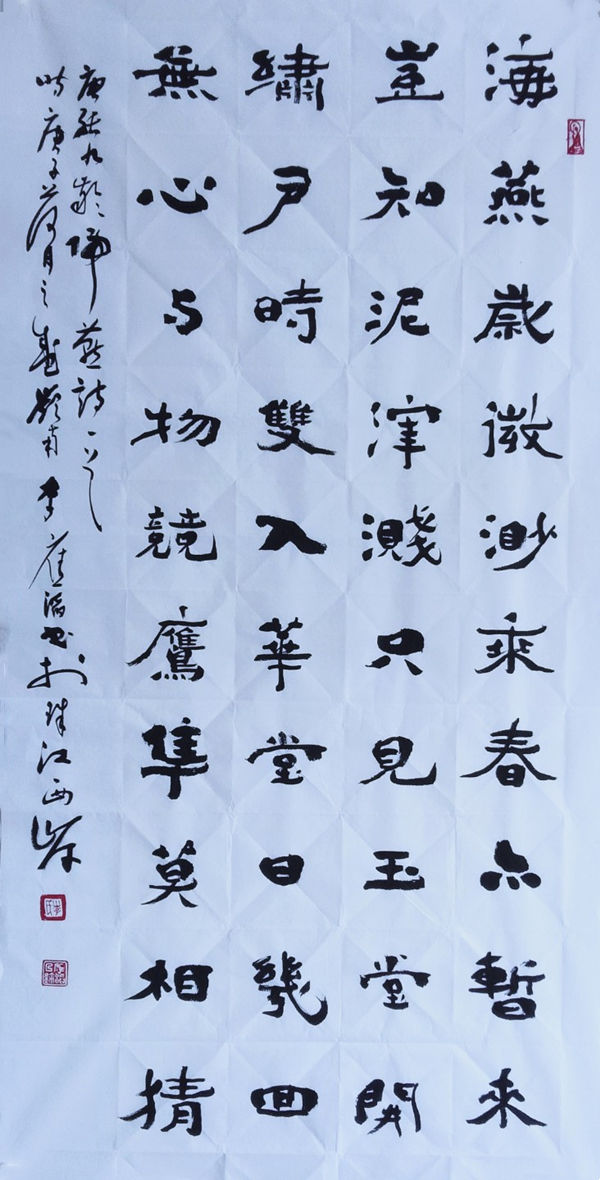 海燕歲微渺乘春亦暫來
豈知泥滓濺只見玉堂開
繡戶時雙入華堂日幾回
無心与物競鷹隼莫相猜
唐張九齡歸燕詩一首
時庚子月之嶺南李應滔書於珠江西岸